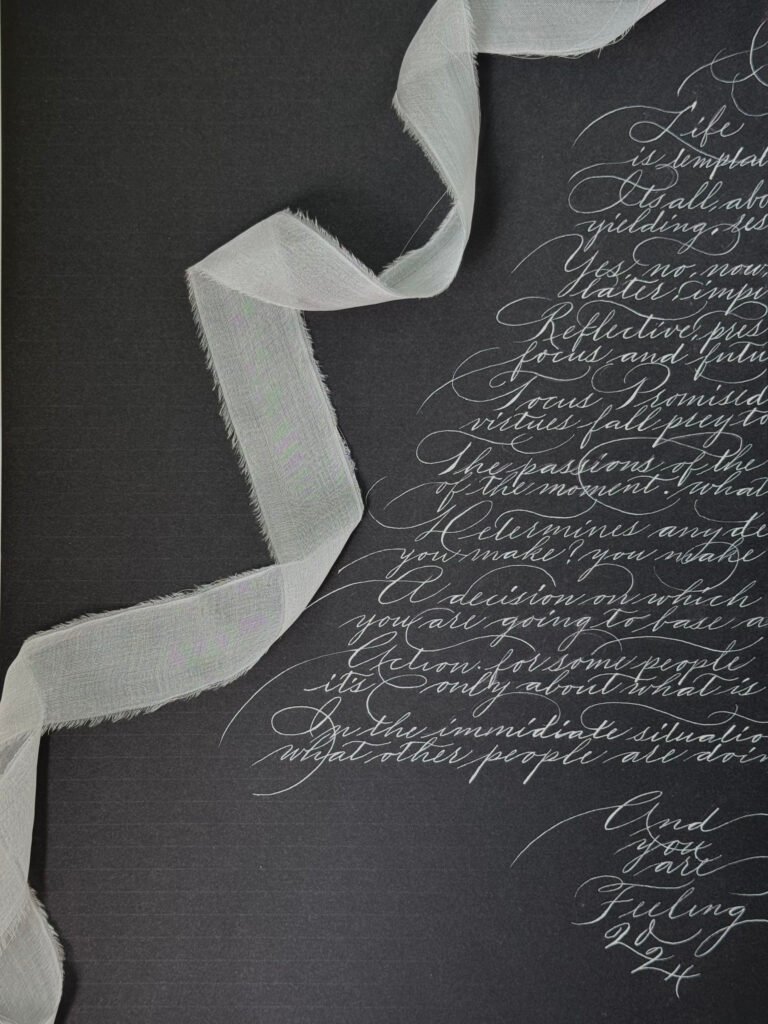 Life
is temptat
Its all, abo
yielding, res
Yes, no, now,
later, impi
Reflective, pres
focus and futu
Focus Promised
virtues fall prey to
The passions of the
of the moment. what
Determines any de
you make? you make
A decision on which
you are going to base a
Action. for some people
it's only about what is
In the immidiate situatio
what other people are doin
And
you
are
Feeling
2024